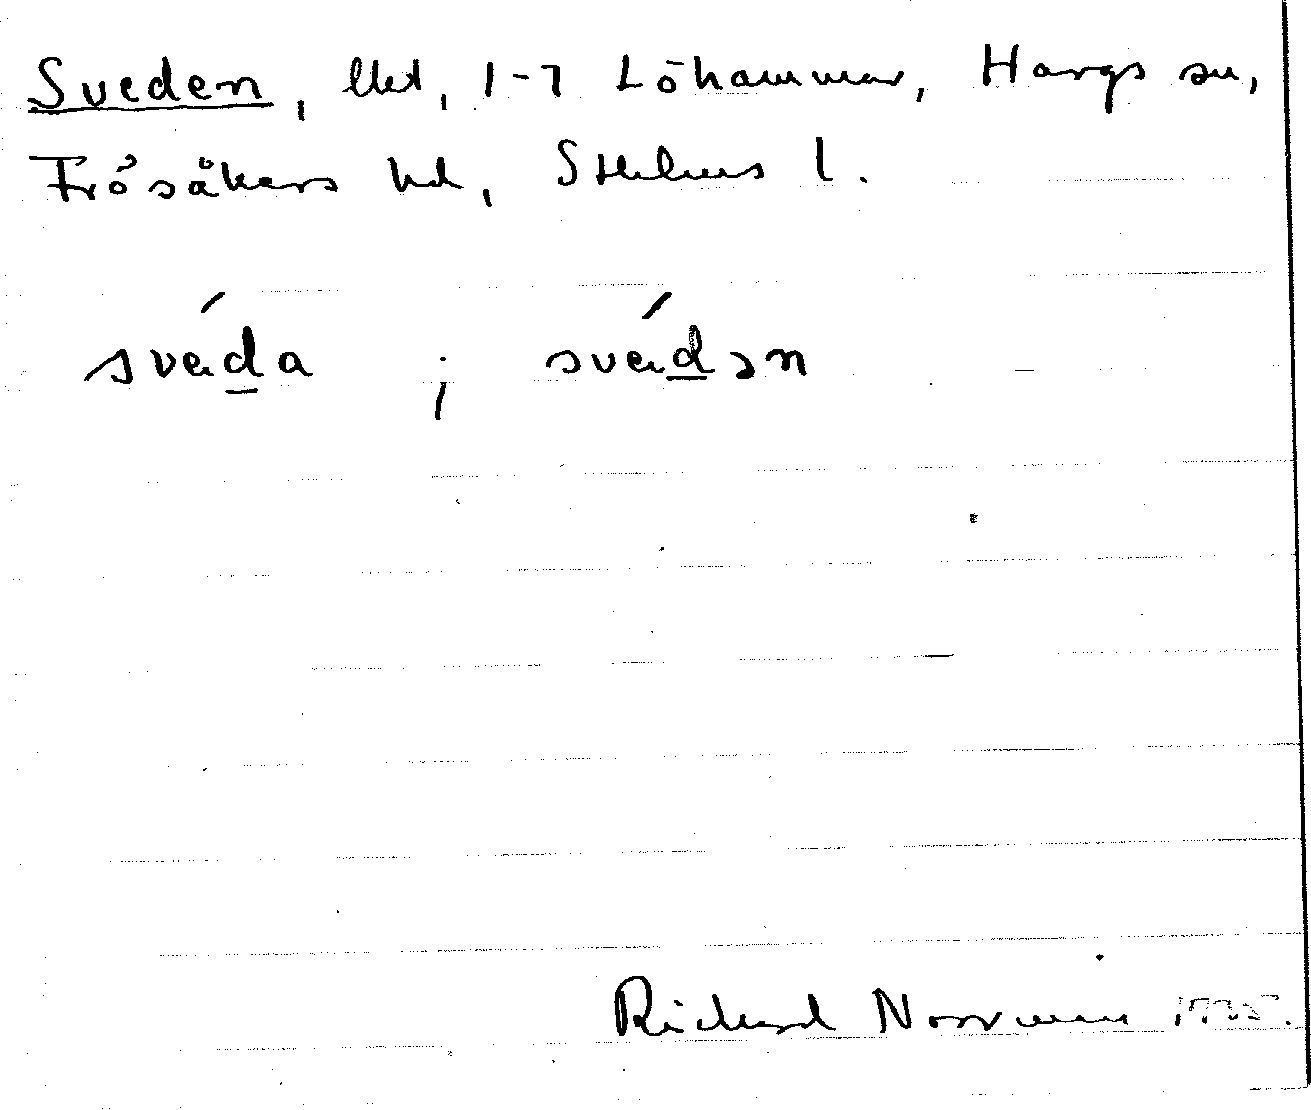 Sveden, Utet, 1-7 Löhammar, Hargs sn,
Frösåkers hd, Sthlms l.
svéda ; svédən
Richard Norrman